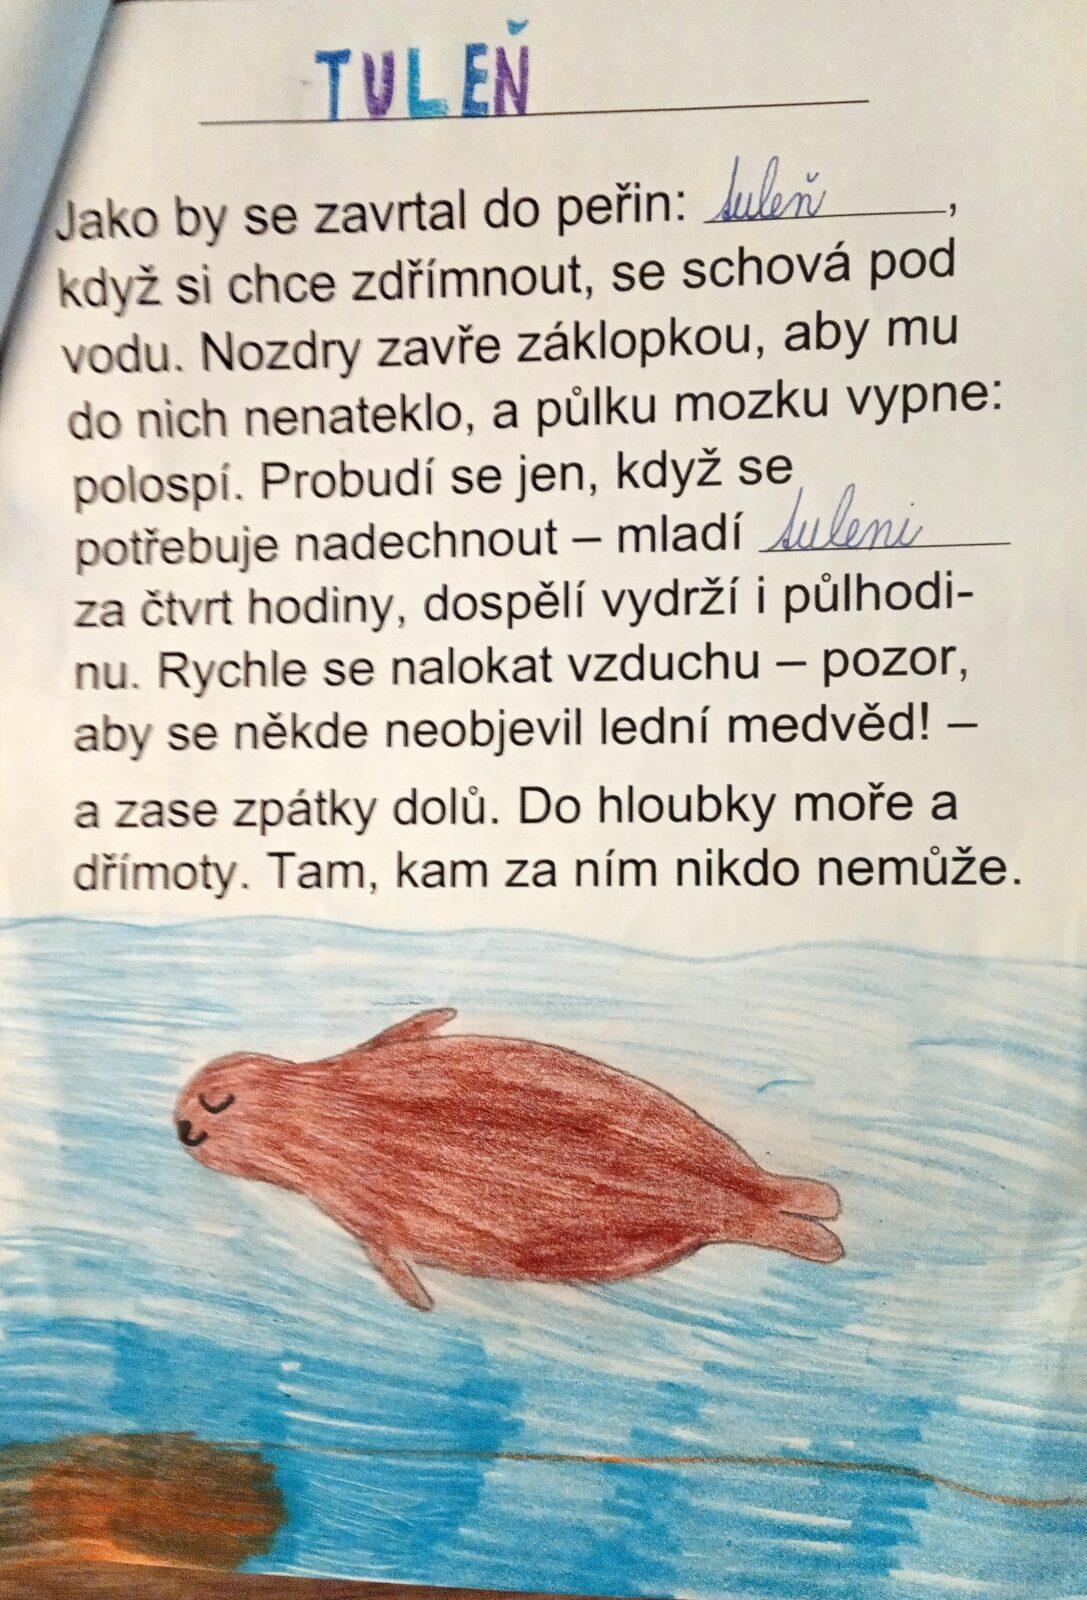 TULEŇ
Jako by se zavrtal do peřin: tuleň,
když si chce zdřímnout, se schová pod
vodu. Nozdry zavře záklopkou, aby mu
do nich nenateklo, a půlku mozku vypne:
polospí. Probudí se jen, když se
potřebuje nadechnout – mladí tuleni
za čtvrt hodiny, dospělí vydrží i půlhodi-
nu. Rychle se nalokat vzduchu – pozor,
aby se někde neobjevil lední medvěd! –
a zase zpátky dolů. Do hloubky moře a
dřímoty. Tam, kam za ním nikdo nemůže.